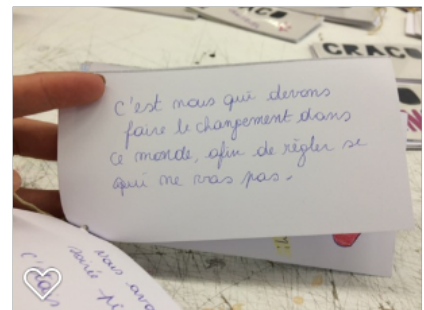 CRAC
c'est nous qui devons
faire le changement dans
ce monde, afin de règler se
qui ne vas pas.
vous avo
soirée
c'